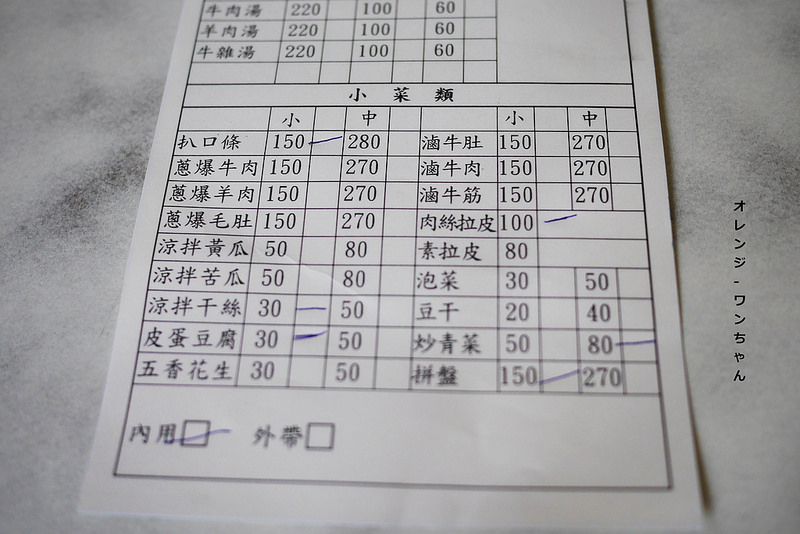 牛肉湯 220 100 60
羊肉湯 220 100 60
牛雜湯 220 100 60
小菜類
小 中 小 中
扒口條 150 280 滷牛肚 150 270
蔥爆牛肉 150 270 滷牛肉 150 270
蔥爆羊肉 150 270 滷牛筋 150 270
蔥爆毛肚 150 270 肉絲拉皮 100
涼拌黃瓜 50 80 素拉皮 80
涼拌苦瓜 50 80 泡菜 30 50
涼拌干絲 30 50 豆干 20 40
皮蛋豆腐 30 50 炒青菜 50 80
五香花生 30 50 拼盤 150 270
內用 外帶
オレンジ-ワンちゃん